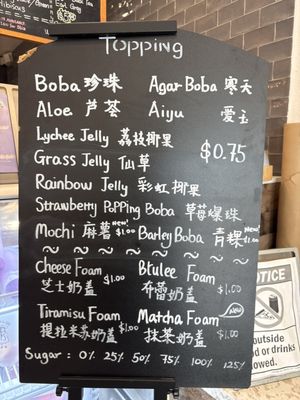 Topping
Boba 珍珠 Agar Boba 寒天
Aloe 芦荟 Aiyu 爱玉
Lychee Jelly 荔枝椰果
$0.75
Grass Jelly 仙草
Rainbow Jelly 彩虹椰果
Strawberry Popping Boba 草莓爆珠
Mochi 麻薯 New! $1.00 Barley Boba 青稞 New! $1.00
Cheese Foam $1.00 Btulee Foam
芝士奶盖 布蕾奶盖 $1.00
Tiramisu Foam Matcha Foam New
提拉米苏奶盖 $1.00 抹茶奶盖 $1.00
Sugar: 0% 25% 50% 75% 100% 125%
NOTICE
outside
food or drinks
allowed.